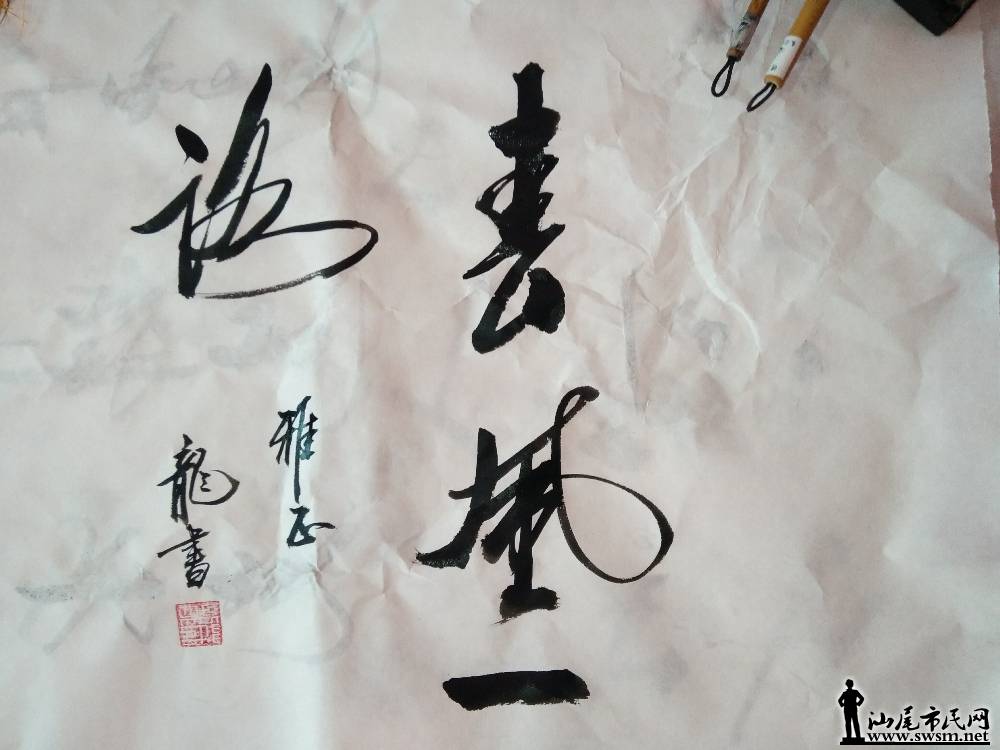 春风一
路
雅正
龍書
汕尾市民网
www.swsm.net